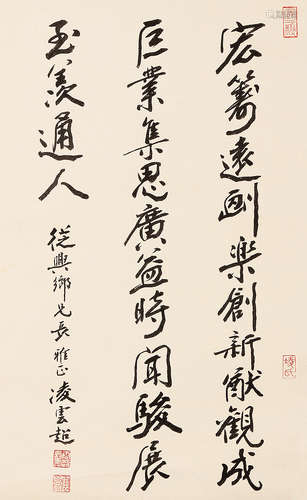 宏籌遠劃樂創新猷觀成
巨業集思廣益時聞駿展
至羨通人
從興鄉兄長雅正 凌雲超